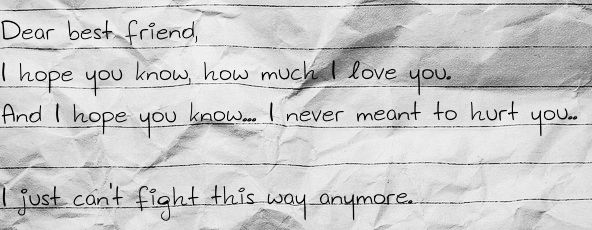 Dear best friend,
I hope you know, how much I love you.
And I hope you know... I never meant to hurt you..
I just can't fight this way anymore.